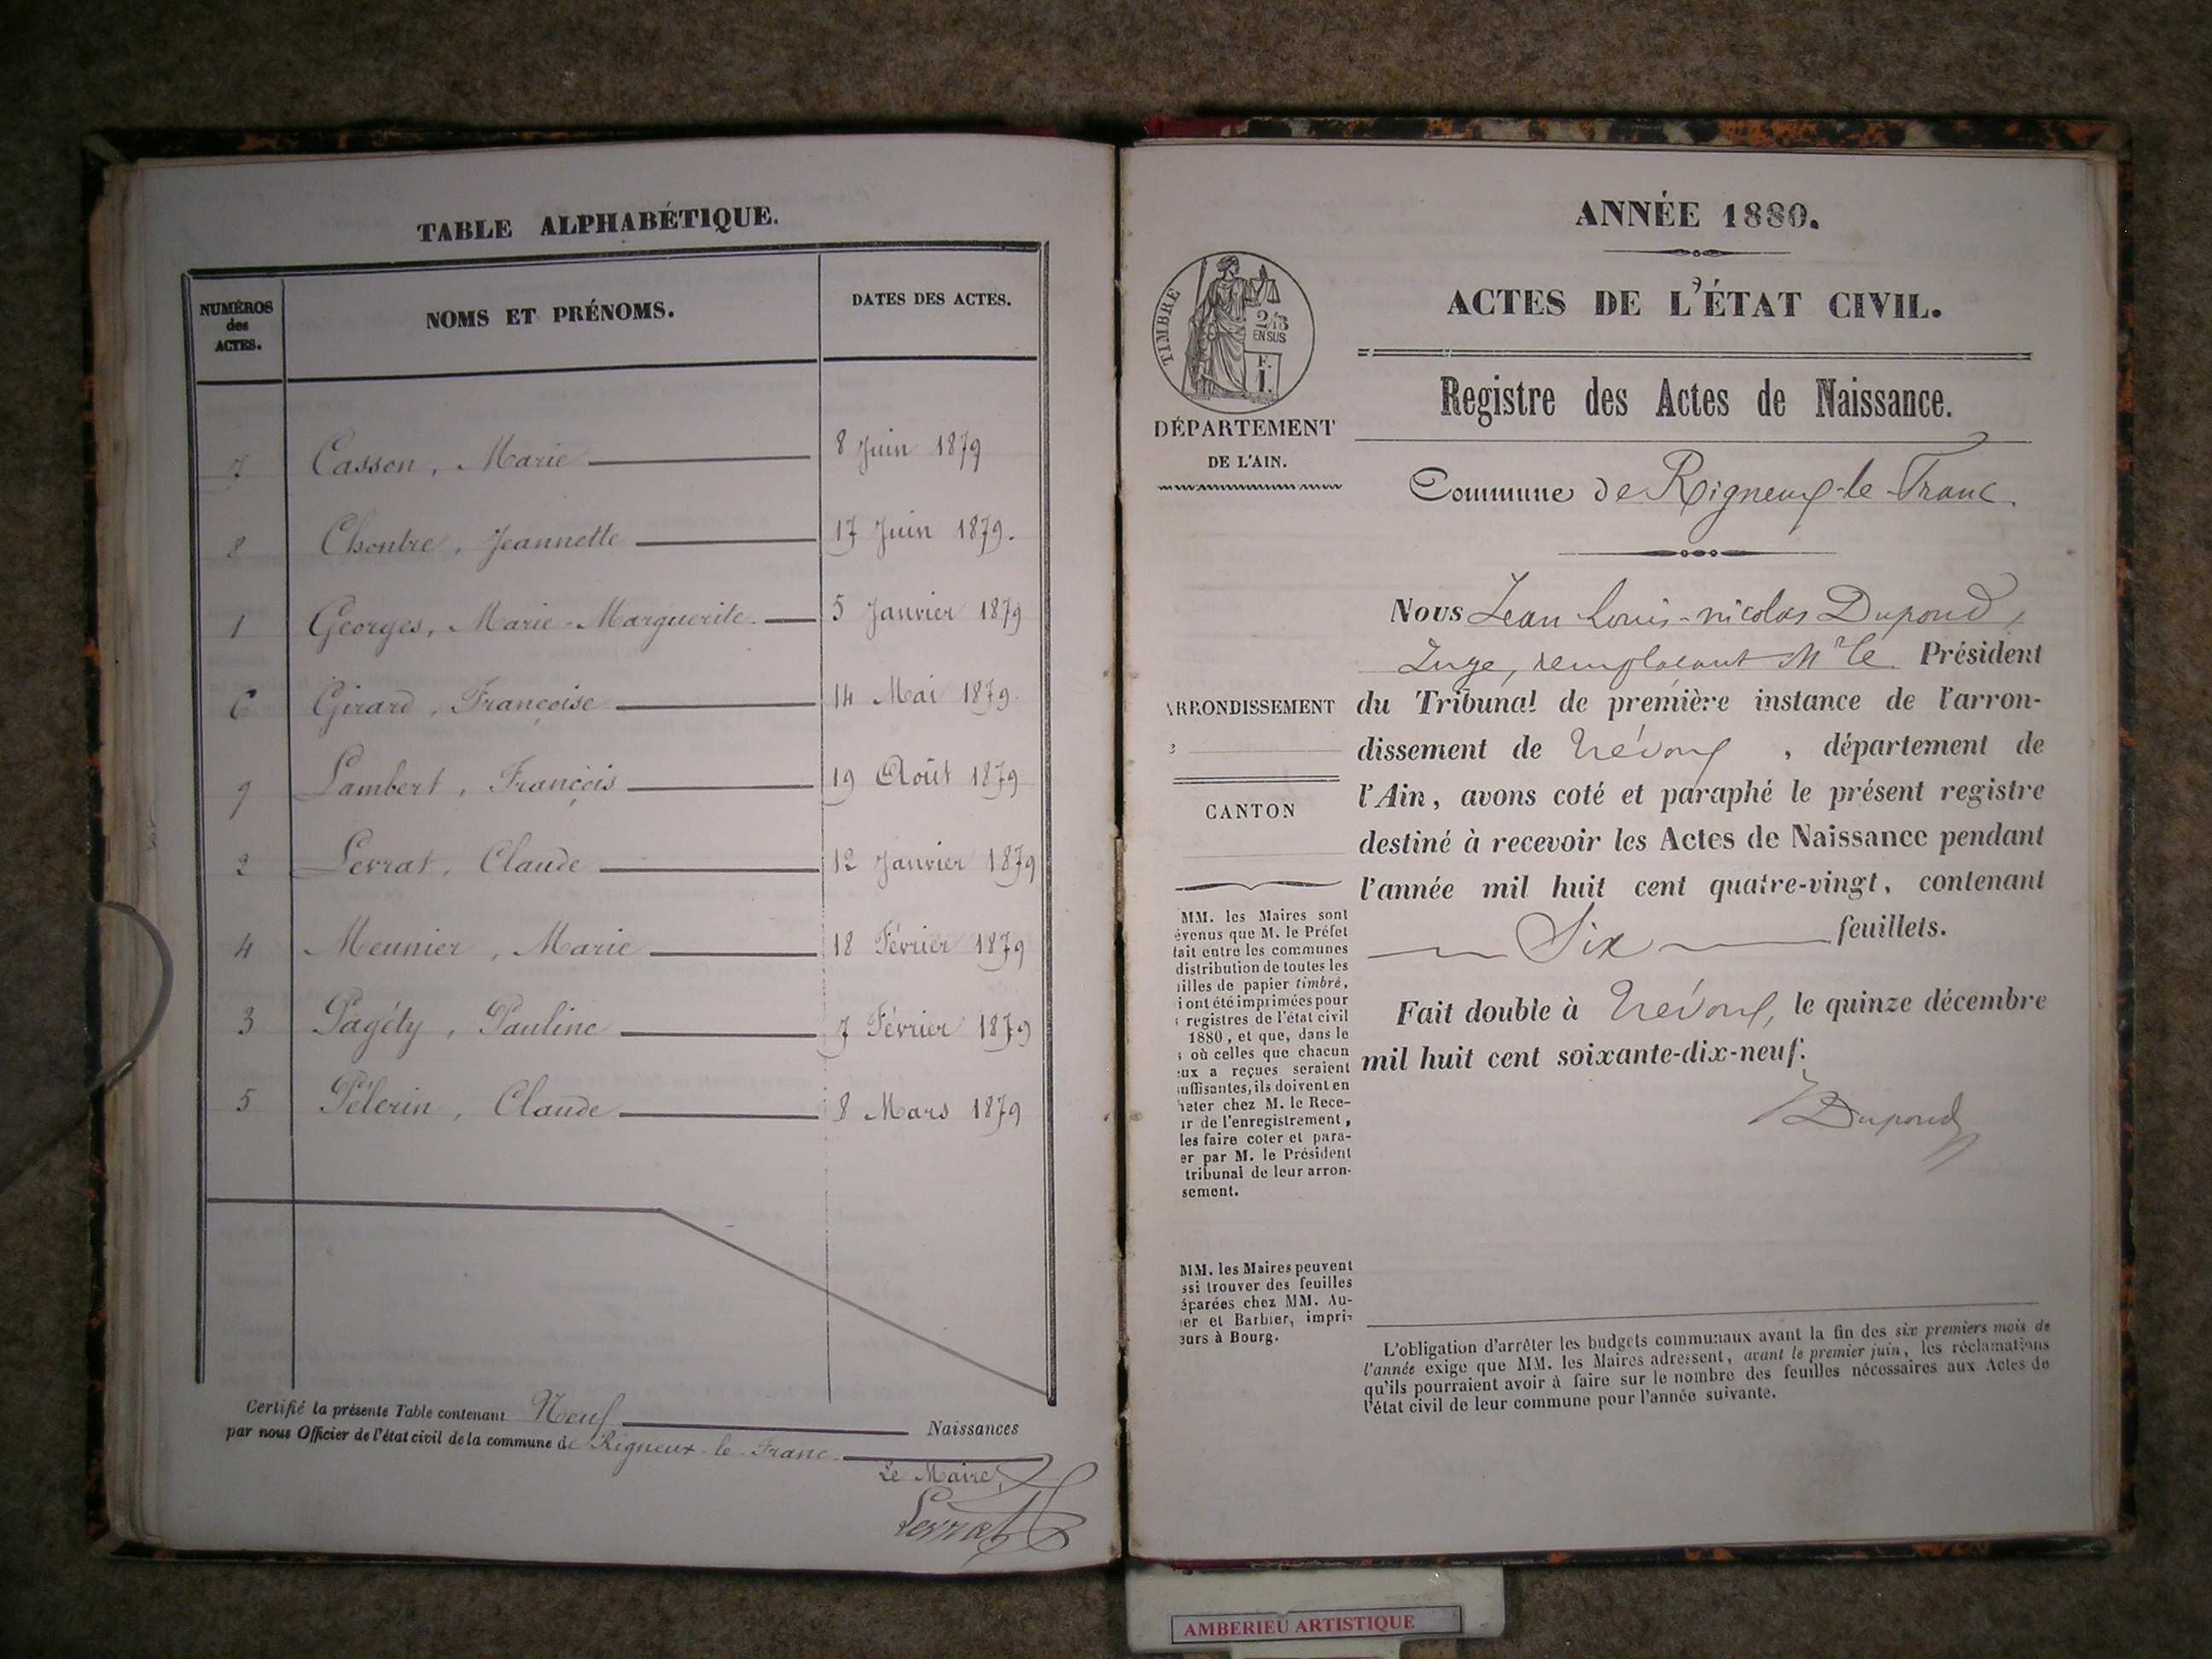 TABLE ALPHABÉTIQUE.
NUMÉROS des ACTES.
NOMS ET PRÉNOMS.
DATES DES ACTES.
7 Casson, Marie 8 Juin 1879
8 Chontre, Jeannette 17 Juin 1879.
1 Georges, Marie-Marguerite 5 Janvier 1879
6 Girard, Françoise 14 Mai 1879.
9 Lambert, François 19 Août 1879
2 Levrat, Claude 12 Janvier 1879
4 Meunier, Marie 18 Février 1879
3 Pagéty, Pauline 7 Février 1879
5 Pélerin, Claude 8 Mars 1879
Certifié la présente Table contenant Neuf Naissances
par nous Officier de l'état civil de la commune de Rigneux-le-Franc
Le Maire,
Levrat
ANNÉE 1880.
ACTES DE L'ÉTAT CIVIL.
Registre des Actes de Naissance.
TIMBRE
EN SUS
F.
1.
DÉPARTEMENT
DE L'AIN.
Commune de Rigneux-le-Franc.
Nous Jean Louis-nicolas Dupond,
Juge, remplacant Mr le Président
du Tribunal de première instance de l'arron-
dissement de Trévoux, département de
l'Ain, avons coté et paraphé le présent registre
destiné à recevoir les Actes de Naissance pendant
l'année mil huit cent quatre-vingt, contenant
Six feuillets.
Fait double à Trévoux, le quinze décembre
mil huit cent soixante-dix-neuf.
Dupond
RRONDISSEMENT
CANTON
MM. les Maires sont
évenus que M. le Préfet
fait entre les communes
distribution de toutes les
uilles de papier timbré,
i ont été imprimées pour
registres de l'état civil
1880, et que, dans le
s où celles que chacun
eux a reçues seraient
suffisantes, ils doivent en
heter chez M. le Rece-
ur de l'enregistrement,
les faire coter et para-
er par M. le Président
tribunal de leur arron-
sement.
MM. les Maires peuvent
ssi trouver des feuilles
éparées chez MM. Au-
ier et Barbier, impri-
eurs à Bourg.
L'obligation d'arrêter les budgets communaux avant la fin des six premiers mois de
l'année exige que MM. les Maires adressent, avant le premier juin, les réclamations
qu'ils pourraient avoir à faire sur le nombre des feuilles nécessaires aux Actes de
l'état civil de leur commune pour l'année suivante.
AMBERIEU ARTISTIQUE